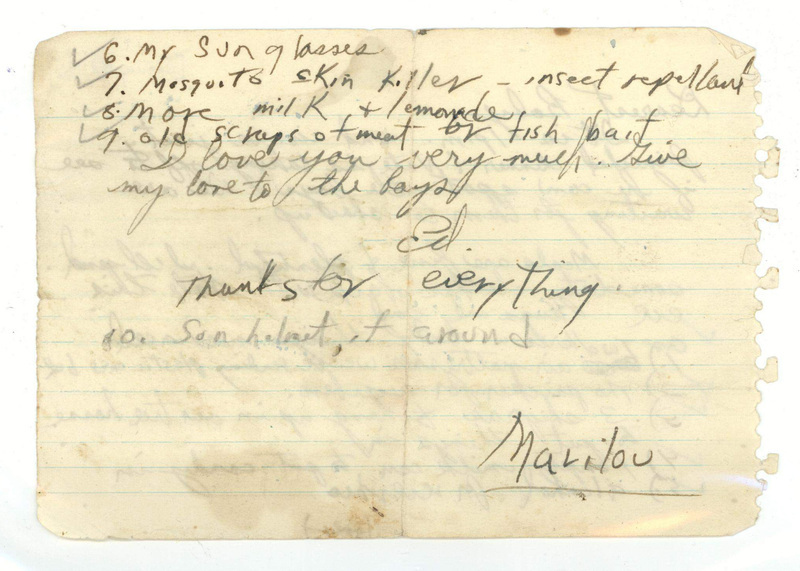 6. My Sunglasses
7. Mosquito skin killer - insect repellant
8. More milk + lemonade
9. old scraps of meat for fish bait
I love you very much. Give
my love to the boys
Ed.
Thanks for everything.
10. Sun helmet, if around
Marilou